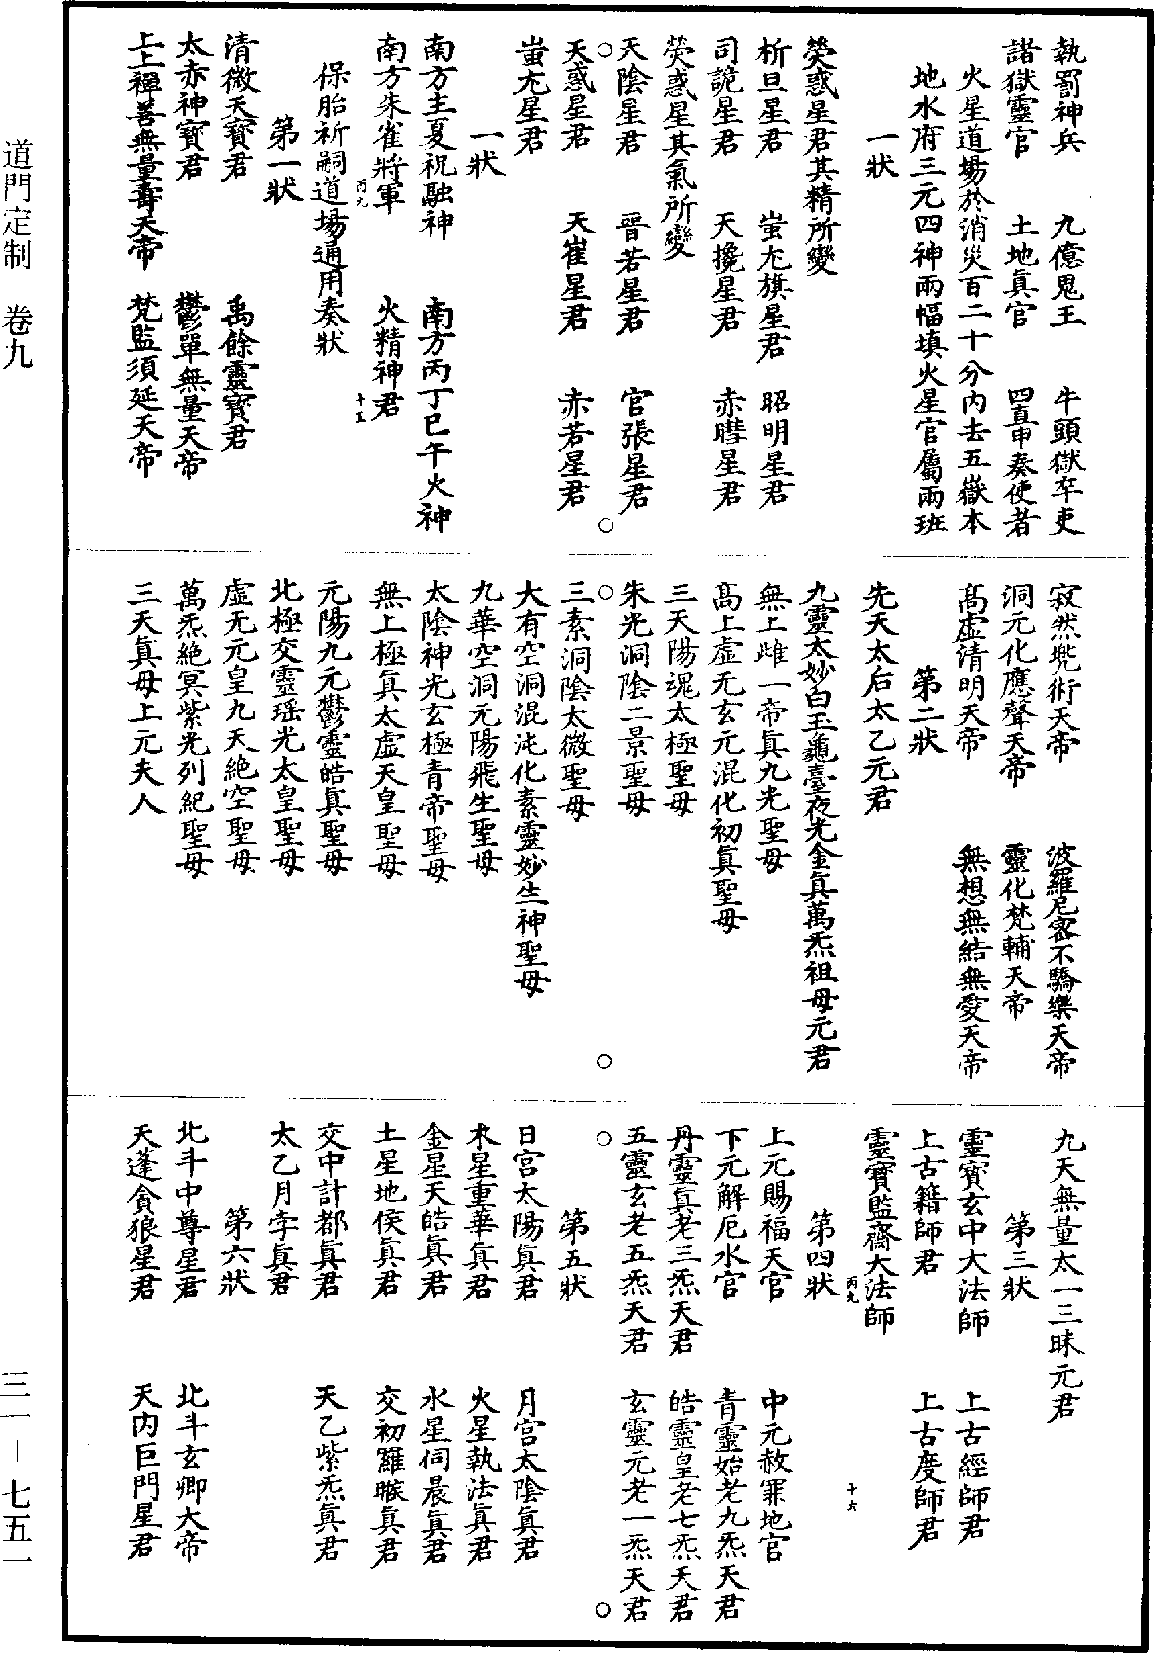 執罰神兵　九億鬼王　牛頭獄卒吏
諸獄靈官　土地真官　四直申奏使者
火星道場於消災百二十分內去五嶽本
地水府三元四神兩幅填火星官屬兩班
一狀
熒惑星君其精所變
析旦星君　蚩尤旗星君　昭明星君
司詭星君　天攙星君　赤彗星君
熒惑星其氣所變
天陰星君　晉若星君　官張星君
天惑星君　天崔星君　赤若星君
蚩尤星君
一狀
南方主夏祝融神　南方丙丁巳午火神
南方朱雀將軍　火精神君
丙九　十五
保胎祈嗣道場通用奏狀
第一狀
清微天寶君　禹餘靈寶君
太赤神寶君　鬱單無量天帝
上上禪善無量壽天帝　梵監須延天帝
寂然兠術天帝　波羅尼密不驕樂天帝
洞元化應聲天帝　靈化梵輔天帝
高虛清明天帝　無想無結無愛天帝
第二狀
先天太后太乙元君
九靈太妙白玉龜臺夜光金真萬炁祖母元君
無上雌一帝真九光聖母
高上虛无玄元混化初真聖母
三天陽魂太極聖母
朱光洞陰二景聖母
三素洞陰太微聖母
大有空洞混沌化素靈妙生神聖母
九華空洞元陽飛生聖母
太陰神光玄極青帝聖母
無上極真太虛天皇聖母
元陽九元鬱靈皓真聖母
北極交靈瑶光太皇聖母
虛无元皇九天絕空聖母
萬炁絕冥紫光列紀聖母
三天真母上元夫人
九天無量太一三昧元君
第三狀
靈寶玄中大法師　上古經師君
上古籍師君　上古度師君
靈寶監齋大法師
丙九　十六
第四狀
上元賜福天官　中元赦罪地官
下元解厄水官　青靈始老九炁天君
丹靈真老三炁天君　皓靈皇老七炁天君
五靈玄老五炁天君　玄靈元老一炁天君
第五狀
日宮太陽真君　月宮太陰真君
木星重華真君　火星執法真君
金星天皓真君　水星伺晨真君
土星地侯真君　交初羅睺真君
交中計都真君　天乙紫炁真君
太乙月孛真君
第六狀
北斗中尊星君　北斗玄卿大帝
天蓬貪狼星君　天內巨門星君
道門定制　卷九
三一－七五一